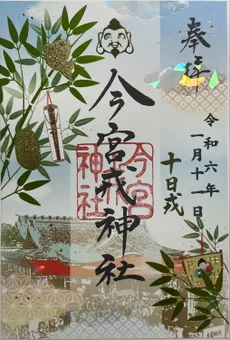 奉拝
令和六年
一月十一日
十日戎
今宮戎神社
今宮
神社